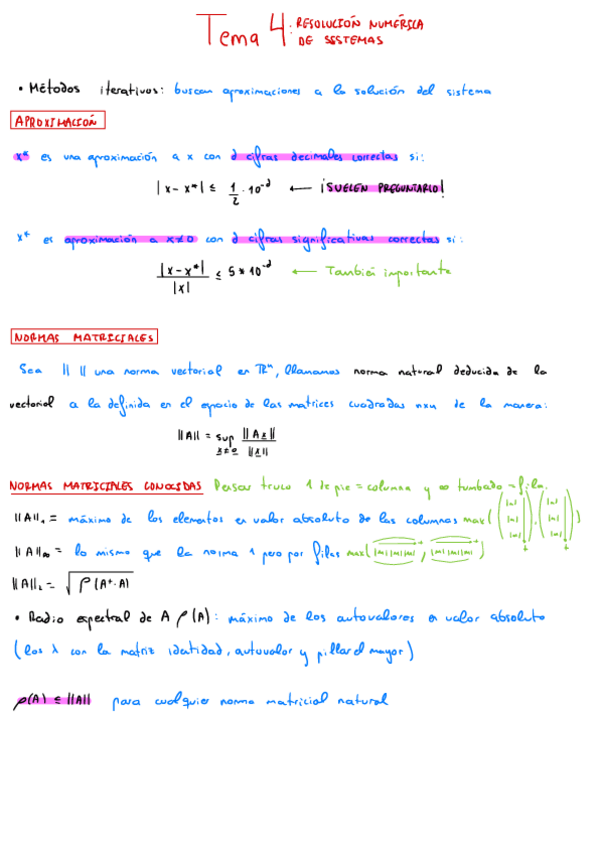 Tema 4: RESOLUCIÓN NUMÉRICA
DE SISTEMAS
• Métodos iterativos: buscan aproximaciones a la solución del sistema
APROXIMACIÓN
x* es una aproximación a x con d cifras decimales correctas si:
|x - x*| ≤ 1/2 · 10^-d ← ¡SUELEN PREGUNTARLO!
x* es aproximación a x≠0 con d cifras significativas correctas si:
|x - x*| / |x| ≤ 5 * 10^-d ← También importante
NORMAS MATRICIALES
Sea || || una norma vectorial en ℝⁿ, llamamos norma natural deducida de la
vectorial a la definida en el espacio de las matrices cuadradas nxn de la manera:
||A|| = sup x≠0 ||Ax|| / ||x||
NORMAS MATRICIALES CONOCIDAS Pensar truco 1 de pie = columna y ∞ tumbado = fila.
||A||₁ = máximo de los elementos en valor absoluto de las columnas max( (|m| |m| |m|), (|m| |m| |m|) )
||A||∞ = lo mismo que la norma 1 pero por filas max( (|m| |m| |m|), (|m| |m| |m|) )
||A||₂ = √ρ(Aᵗ·A)
• Radio espectral de A ρ(A): máximo de los autovalores en valor absoluto
(los λ con la matriz identidad, autovalor y pillar el mayor)
ρ(A) ≤ ||A|| para cualquier norma matricial natural